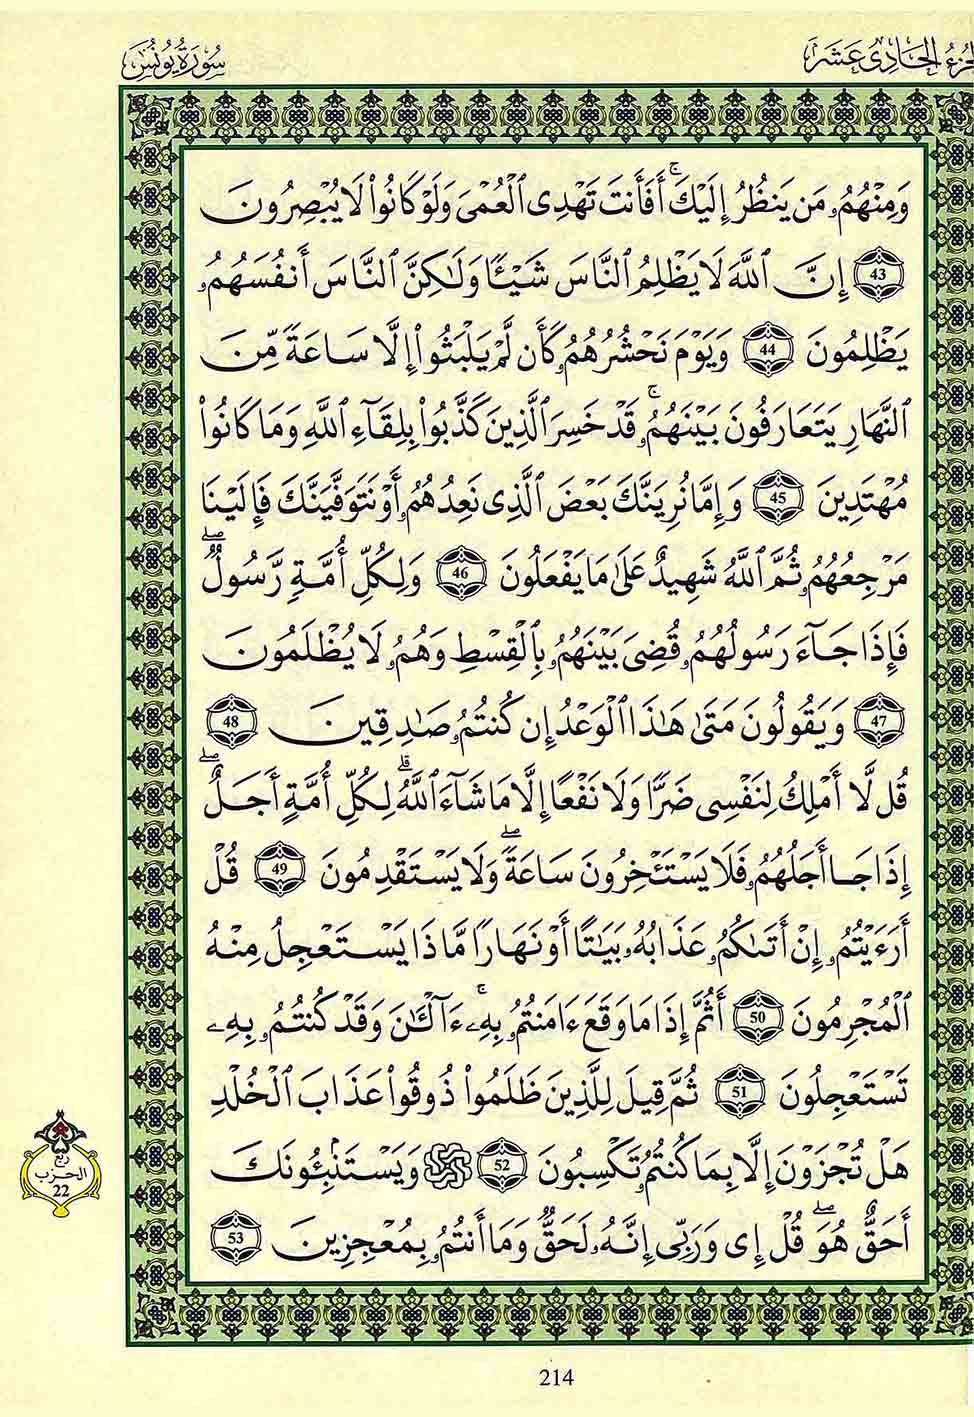 الجزء الحادي عشر
سورة يونس
وَمِنْهُمُۥ مَن يَنظُرُ إِلَيْكَۚ أَفَأَنتَ تَهْدِى اُ۬لْعُمْىَ وَلَوْ كَانُواْ لَا يُبْصِرُونَ
43 إِنَّ اَ۬للَّهَ لَا يَظْلِمُ اُ۬لنَّاسَ شَيْـًٔا وَلَٰكِنَّ اَ۬لنَّاسَ أَنفُسَهُمُۥ
يَظْلِمُونَ 44 وَيَوْمَ نَحْشُرُهُمُۥ كَأَن لَّمْ يَلْبَثُواْ إِلَّا سَاعَةً مِّنَ
اَ۬لنَّهَارِ يَتَعَارَفُونَ بَيْنَهُمُۥۚ قَدْ خَسِرَ اَ۬لَّذِينَ كَذَّبُواْ بِلِقَآءِ اِ۬للَّهِ وَمَا كَانُواْ
مُهْتَدِينَ 45 وَإِمَّا نُرِيَنَّكَ بَعْضَ اَ۬لَّذِى نَعِدُهُمُۥ أَوْ نَتَوَفَّيَنَّكَ فَإِلَيْنَا
مَرْجِعُهُمُۥ ثُمَّ اَ۬للَّهُ شَهِيدٌ عَلَىٰ مَا يَفْعَلُونَ 46 وَلِكُلِّ أُمَّةٍ رَّسُولٌۖ
فَإِذَا جَآءَ رَسُولُهُمُۥ قُضِىَ بَيْنَهُمُۥ بِالْقِسْطِ وَهُمُۥ لَا يُظْلَمُونَ
47 وَيَقُولُونَ مَتَىٰ هَٰذَا اَ۬لْوَعْدُ إِن كُنتُمُۥ صَٰدِقِينَ 48
قُل لَّا أَمْلِكُ لِنَفْسِى ضَرًّا وَلَا نَفْعًا إِلَّا مَا شَآءَ اَ۬للَّهُۗ لِكُلِّ أُمَّةٍ أَجَلٌۖ
إِذَا جَا أَجَلُهُمُۥ فَلَا يَسْتَـْٔخِرُونَ سَاعَةًۖ وَلَا يَسْتَقْدِمُونَ 49 قُلْ
أَرَءَيْتُمُۥ إِنْ أَتَىٰكُمُۥ عَذَابُهُۥ بَيَٰتًا أَوْ نَهَارًا مَّاذَا يَسْتَعْجِلُ مِنْهُ
اُ۬لْمُجْرِمُونَ 50 أَثُمَّ إِذَا مَا وَقَعَ ءَامَنتُمُۥ بِهِۦۚ ءَآلْـَٰٔنَ وَقَدْ كُنتُمُۥ بِهِۦ
تَسْتَعْجِلُونَ 51 ثُمَّ قِيلَ لِلَّذِينَ ظَلَمُواْ ذُوقُواْ عَذَابَ اَ۬لْخُلْدِ
هَلْ تُجْزَوْنَ إِلَّا بِمَا كُنتُمُۥ تَكْسِبُونَ 52 وَيَسْتَنۢبِـُٔونَكَ
أَحَقٌّ هُوَۖ قُلْ إِى وَرَبِّى إِنَّهُۥ لَحَقٌّ وَمَا أَنتُمُۥ بِمُعْجِزِينَ 53
ربع
الحزب
22
214